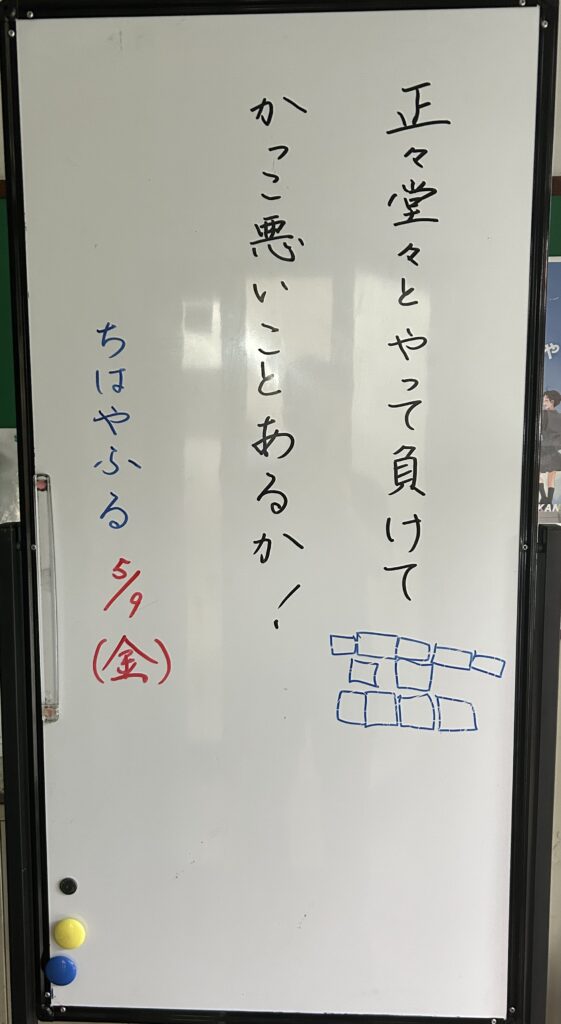 正々堂々とやって負けて
かっこ悪いことあるか！
ちはやふる 5/9(金)
や
KAN